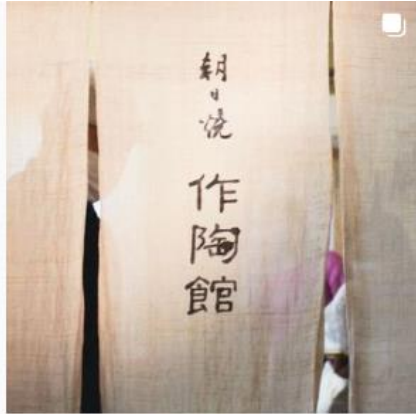 朝日焼
作陶館